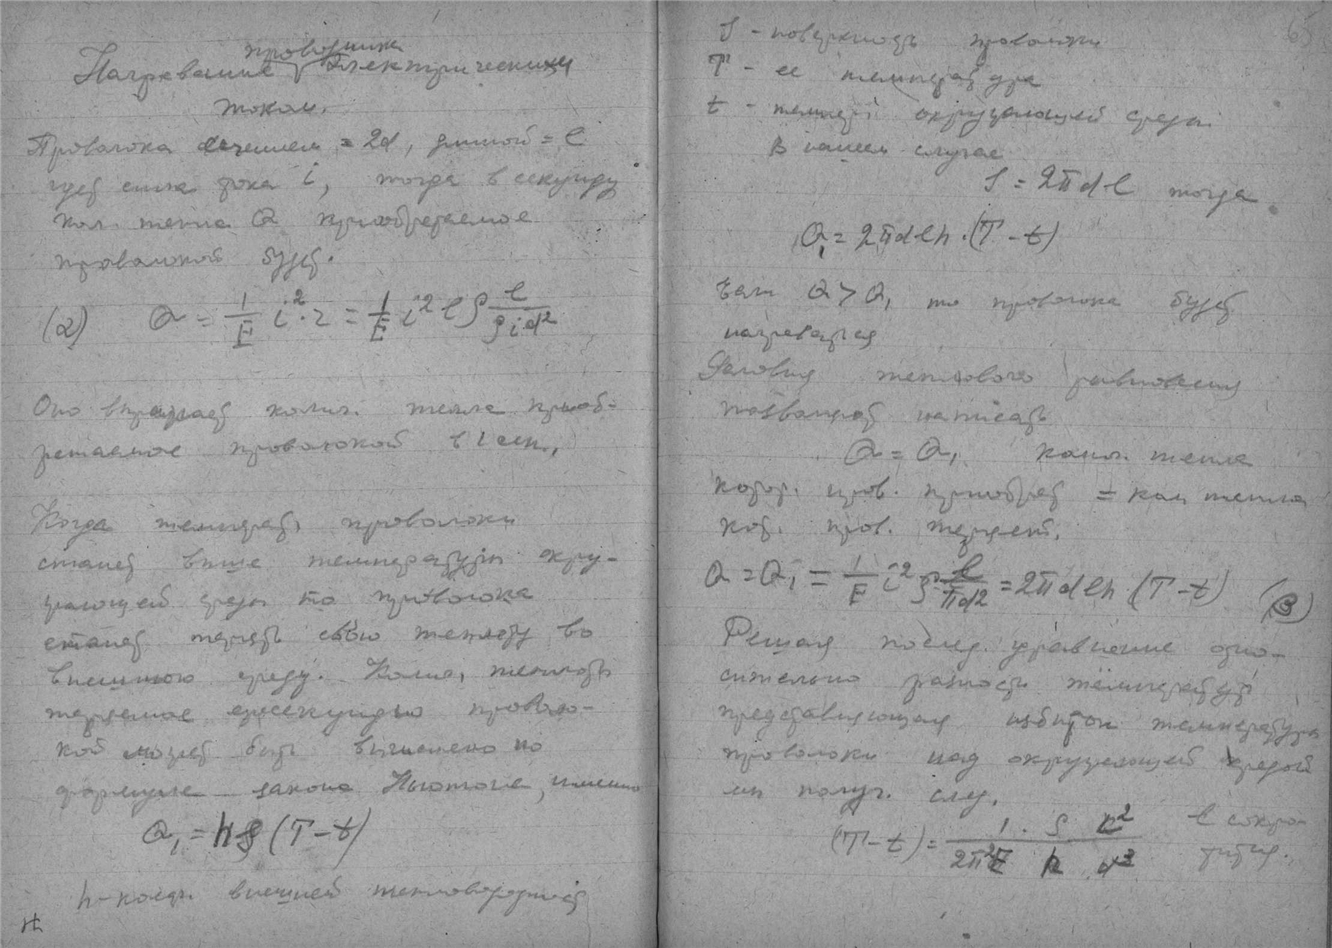 проводника
Нагревание электрическим
током.
Проволока сечением = 2d, длиной = l
идет сила тока i, тогда в секунду
кол. тепла Q приобретаемое
проволокой будет.
(2) Q = 1/E i²·r = 1/E i² l ρ
Оно выражает колич. тепла приоб-
ретаемое проволокой в 1 сек.,
Когда температ. проволоки
станет выше температуры окру-
жающей среды то проволока
станет терять свою теплоту во
внешнюю среду. Колич. теплоты
теряемое ежесекундно проволо-
кой может быть вычислено по
формуле закона Ньютона, именно
Q₁ = hS (T − t)
h – коэф. внешней теплопроводност
65
S – поверхность проволоки
T – ее температура
t – темпер. окружающей среды.
В нашем случае
S = 2πdl тогда
Q₁ = 2πdlh·(T − t)
Если Q > Q₁ то проволока будет
нагреваться
Условия теплового равновесия
позволяют написать
Q = Q₁. Колич. тепла
котор. пров. приобрет = кол тепла
кот. пров. теряет.
Q = Q₁ = 1/E i² ρ l/πd2 = 2πdlh·(T − t) (3)
Решая послед. уравнение отно-
сительно разности температур
представляющая избыток температуры
проволоки над окружающей средой
мы получ. след.
(T − t) = l сокра-
тится.